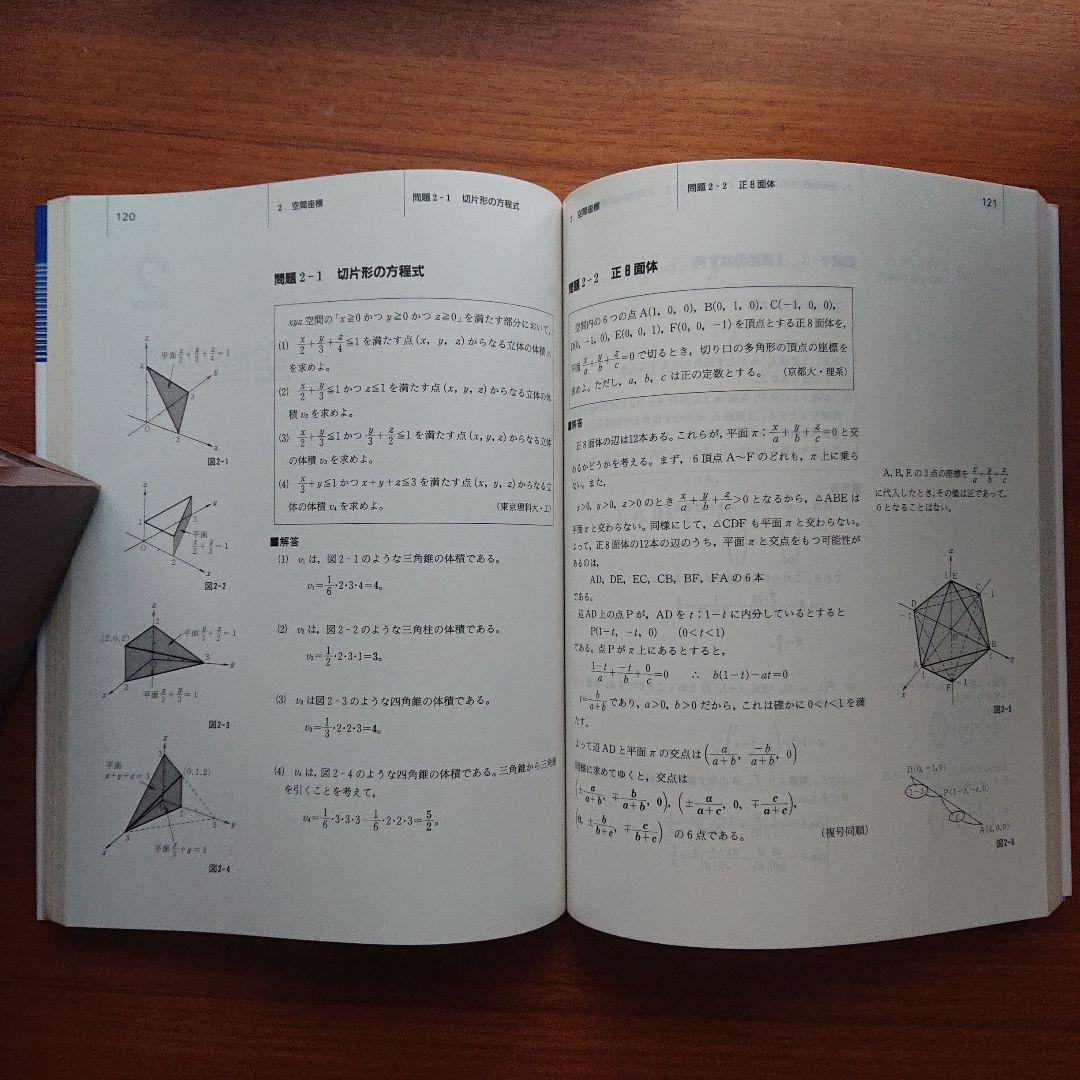 120
2. 空間座標
問題2-1 切片形の方程式
問題2-1 切片形の方程式
xyz空間の「x≧0かつy≧0かつz≧0」を満たす部分において,
(1) x/2+y/3+z/4≦1を満たす点(x, y, z)からなる立体の体積v₁
を求めよ。
(2) x/2+y/3≦1かつz≦1を満たす点(x, y, z)からなる立体の体
積v₂を求めよ。
(3) x/2+y/3≦1かつy/3+z/2≦1を満たす点(x, y, z)からなる立体
の体積v₃を求めよ。
(4) x/3+y≦1かつx+y+z≦3を満たす点(x, y, z)からなる立
体の体積v₄を求めよ。 (東京理科大・工)
■解答
(1) v₁は, 図2-1のような三角錐の体積である。
v₁=1/6・2・3・4=4。
(2) v₂は, 図2-2のような三角柱の体積である。
v₂=1/2・2・3・1=3。
(3) v₃は図2-3のような四角錐の体積である。
v₃=1/3・2・2・3=4。
(4) v₄は, 図2-4のような四角錐の体積である。三角錐から三角錐
を引くことを考えて,
v₄=1/6・3・3・3−1/6・2・2・3=5/2。
z
平面x/2+y/3+z/4=1
4
y
3
0
2
x
図2-1
z
y
1
3
平面
x/2+y/3=1
0
2
x
図2-2
z
平面y/3+z/2=1
(2,0,2)
3
y
x
平面x/2+y/3=1
図2-3
z
3
平面
x+y+z=3
(0,1,2)
1
3
y
3
x
平面x/3+y=1
図2-4
2. 空間座標
問題2-2 正8面体
121
問題2-2 正8面体
空間内の6つの点A(1, 0, 0), B(0, 1, 0), C(−1, 0, 0),
D(0, −1, 0), E(0, 0, 1), F(0, 0, −1)を頂点とする正8面体を,
平面x/a+y/b+z/c=0で切るとき, 切り口の多角形の頂点の座標を
求めよ。ただし, a, b, cは正の定数とする。 (京都大・理系)
■解答
正8面体の辺は12本ある。これらが, 平面π：x/a+y/b+z/c=0と交
わるかどうかを考える。まず, 6頂点A〜Fのどれも, π上に乗ら
ない。また,
x>0, y>0, z>0のときx/a+y/b+z/c>0となるから, △ABEは
平面πと交わらない。同様にして, △CDFも平面πと交わらない。
よって, 正8面体の12本の辺のうち, 平面πと交点をもつ可能性が
あるのは,
AD, DE, EC, CB, BF, FAの6本
である。
辺AD上の点Pが, ADをt：1−tに内分しているとすると
P(1−t, −t, 0) (0<t<1)
である。点Pがπ上にあるとすると,
(1−t)/a+(−t)/b+0/c=0 ∴ b(1−t)−at=0
t=b/(a+b)であり, a>0, b>0だから, これは確かに0<t<1を満
たす。
よって辺ADと平面πの交点は(a/(a+b), −b/(a+b), 0)
同様に求めてゆくと, 交点は
(±a/(a+b), ∓b/(a+b), 0), (±a/(a+c), 0, ∓c/(a+c)),
(0, ±b/(b+c), ∓c/(b+c)) の6点である。 (複号同順)
A, B, Eの3点の座標をx/a+y/b+z/c
に代入したとき, その値は正であって,
0となることはない。
z
1
E
C
−1
D
B
1
A
1
F
−1
x
y
図2-5
D(0,−1,0)
1−t
P(1−t,−t,0)
t
A(1,0,0)
図2-6